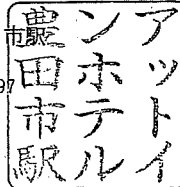 アットイ
ンホテル
豊田市駅
市駅
97